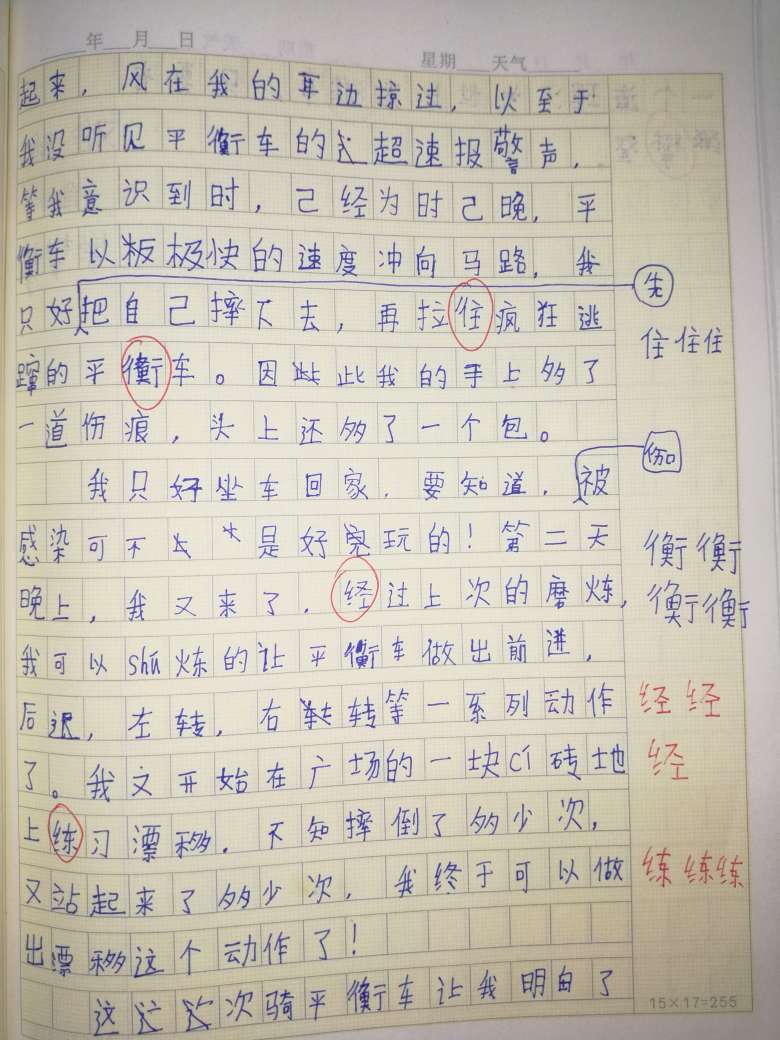 年 月 日 星期 天气
起来，风在我的耳边掠过，以至于
我没听见平衡车的超速报警声，
等我意识到时，己经为时己晚，平
衡车以极快的速度冲向马路，我
先
只好把自己摔下去，再拉住疯狂逃
住住住
蹿的平衡车。因此我的手上多了
一道伤痕，头上还多了一个包。
伤口
我只好坐车回家．要知道，被
感染可不是好玩的！第二天
衡衡
晚上，我又来了．经过上次的磨炼，
衡衡
我可以shú炼的让平衡车做出前进，
后退，左转，右转等一系列动作
经经
了。我又开始在广场的一块cí砖地
经
上练习漂移．不知摔倒了多少次，
练练练
又站起来了多少次，我终于可以做
出漂移这个动作了！
这次骑平衡车让我明白了
15×17=255